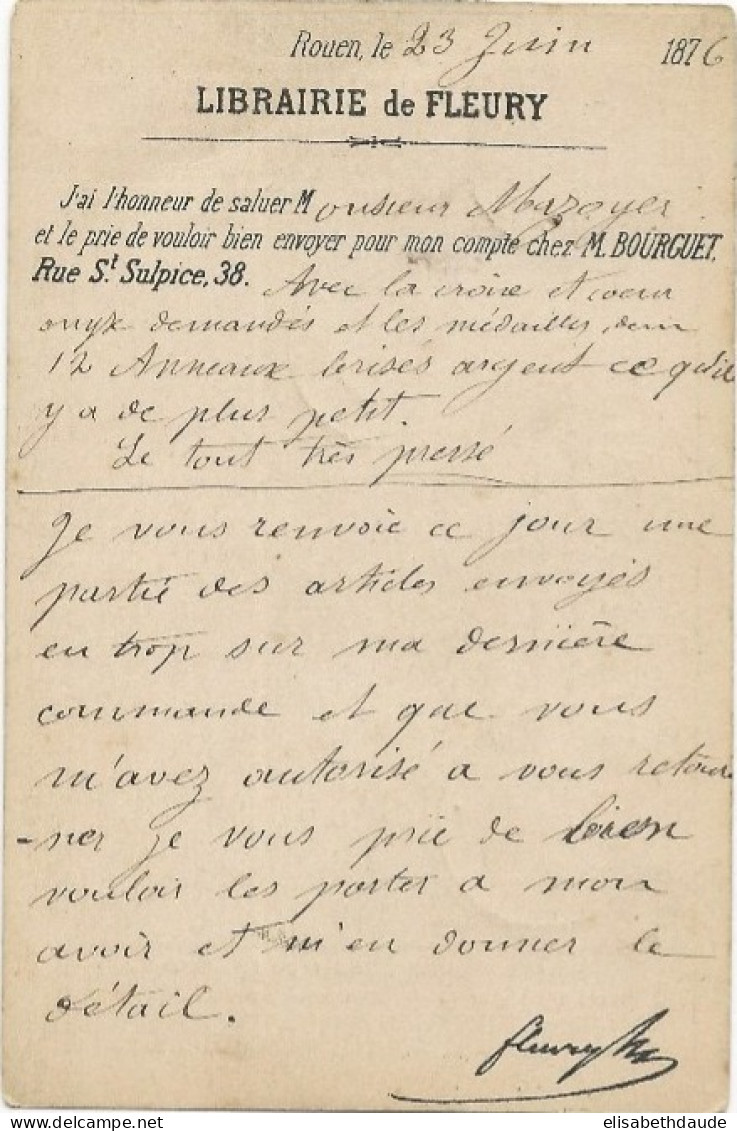 Rouen, le 23 Juin 1876
LIBRAIRIE de FLEURY
J'ai l'honneur de saluer Monsieur Mazoyer
et le prie de vouloir bien envoyer pour mon compte chez M. BOURGUET,
Rue St. Sulpice, 38. Avec la croix et coeur
onyx demandés et les médailles,
12 Anneaux brisés argent ce qu'il
y a de plus petit.
Le tout très pressé
Je vous renvoie ce jour une
partie des articles envoyés
en trop sur ma dernière
commande et que vous
m'avez autorisé a vous retour
-ner je vous prie de bien
vouloir les porter a mon
avoir et m'en donner le
détail.
fleury
elisabethdaude